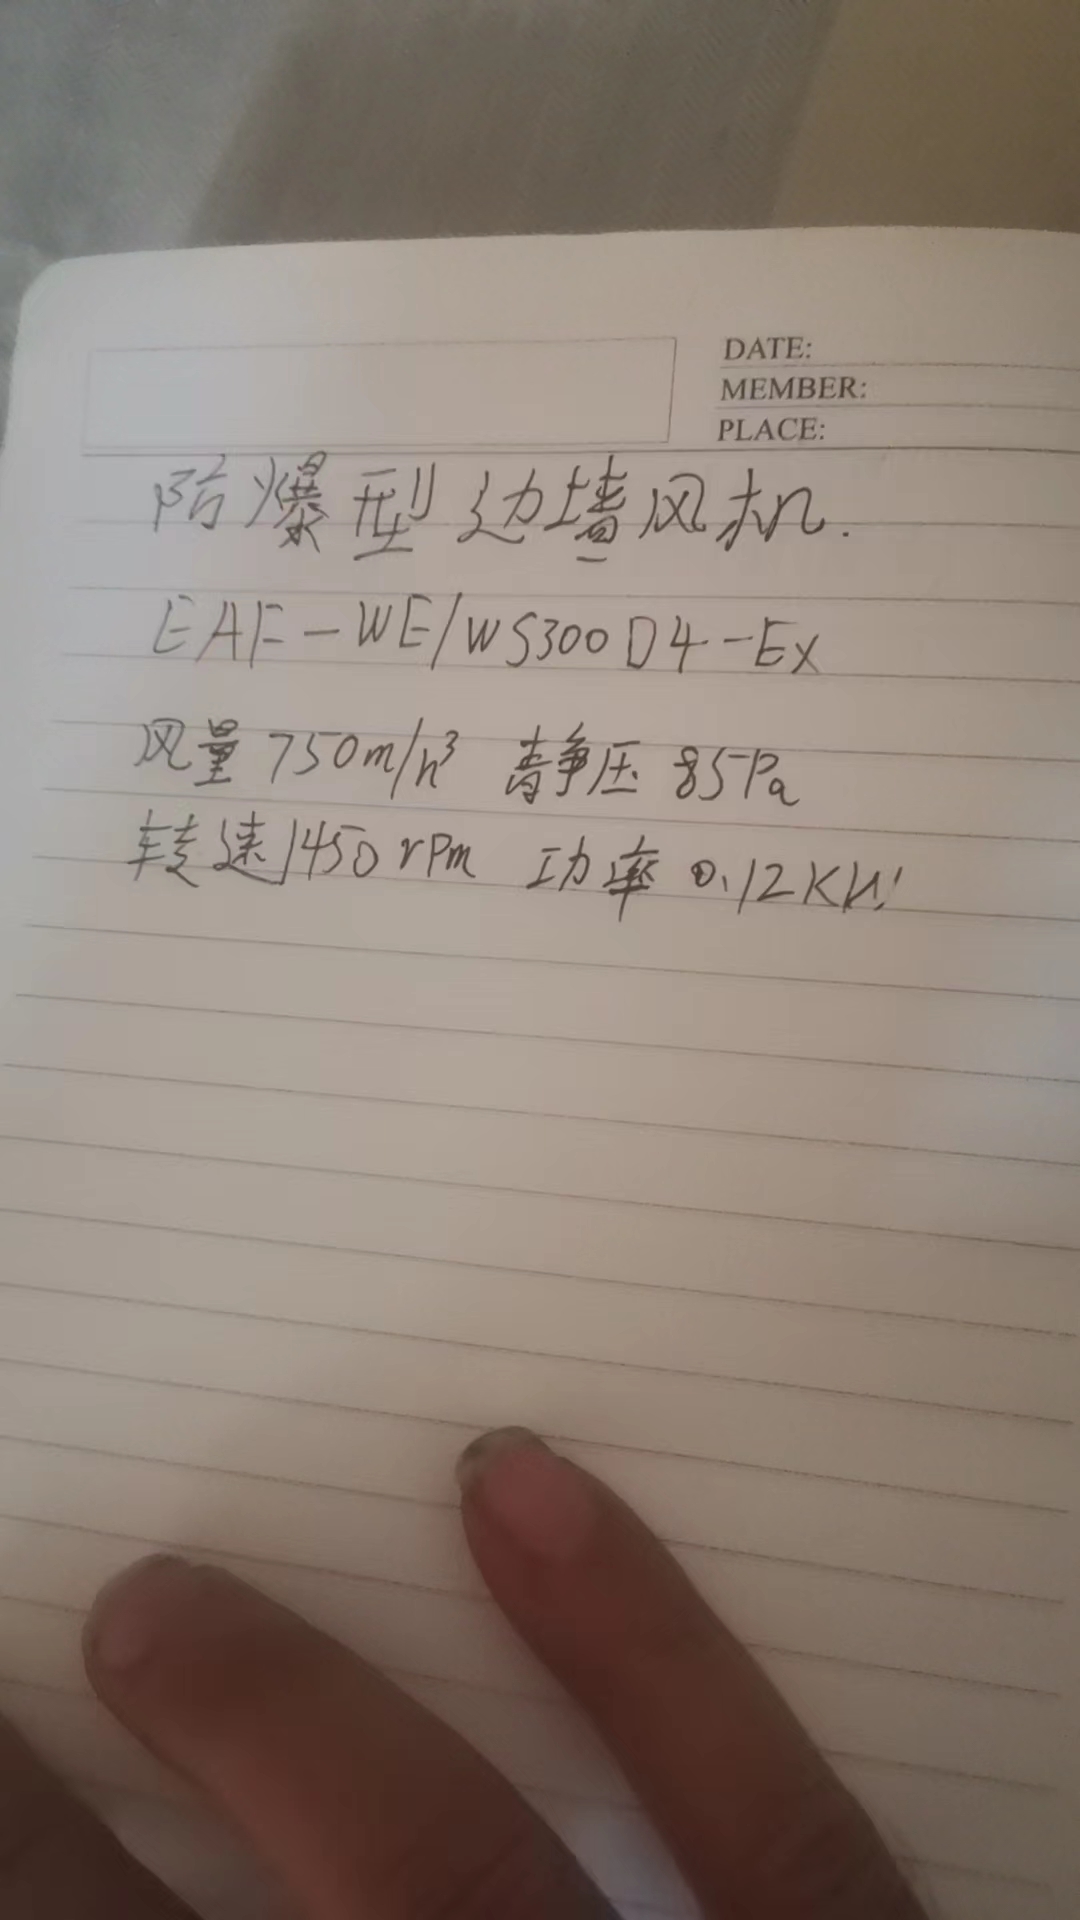 DATE:
MEMBER:
PLACE:
防爆型边墙风机.
EAF-WE/WS300D4-Ex
风量 750m/h³ 静压 85Pa
转速1450rpm 功率 0.12KW